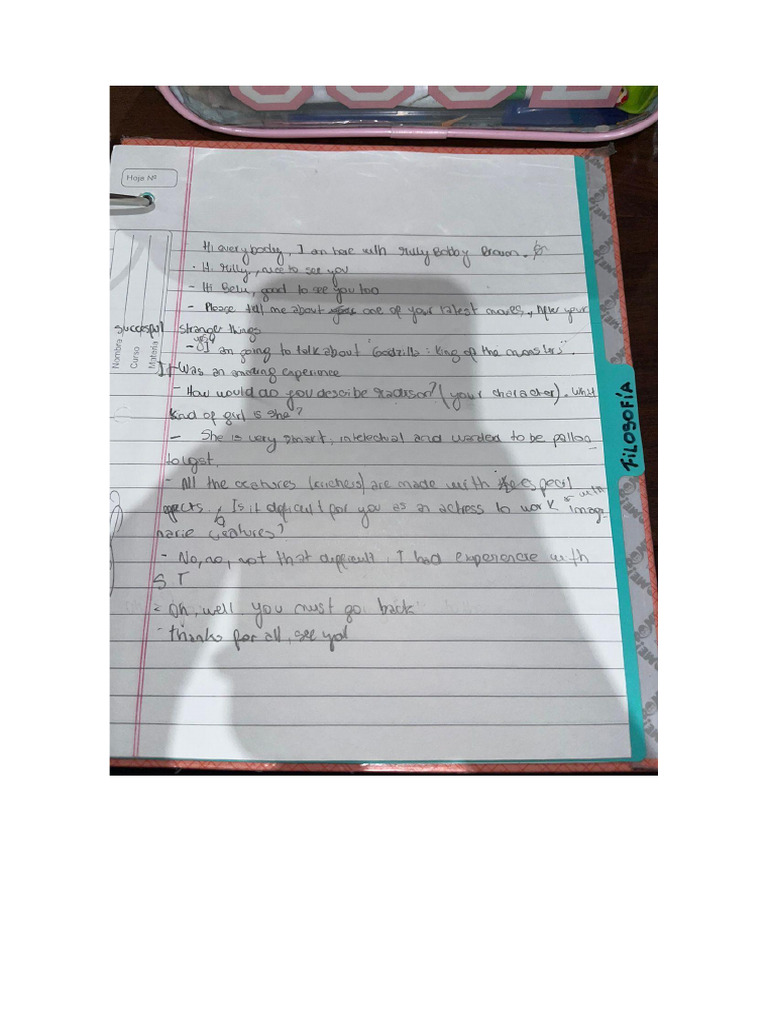 Hoja Nº
Nombre
Curso
Materia
FiLOSOFÍA
- Hi everybody, I am here with Milly Bobby Brown.
- Hi Milly, nice to see you
- Hi Belu, good to see you too
- Please tell me about one of your latest movies, After your
succesful stranger things
- yes, I am going to talk about "Godzilla: King of the monsters".
It was an amazing experience
- How would do you describe Madison? (your character). What
kind of girl is she?
- She is very smart, intelectual and wanted to be paleon_
tologst.
- All the creatures (kricheis) are made with especil
effects. Is it dificult for you as an actress to work with imagi
narie creatures?
- No, no, not that difficult. I had experience with
S.T
- Oh, well you must go back
- thanks for all, see you